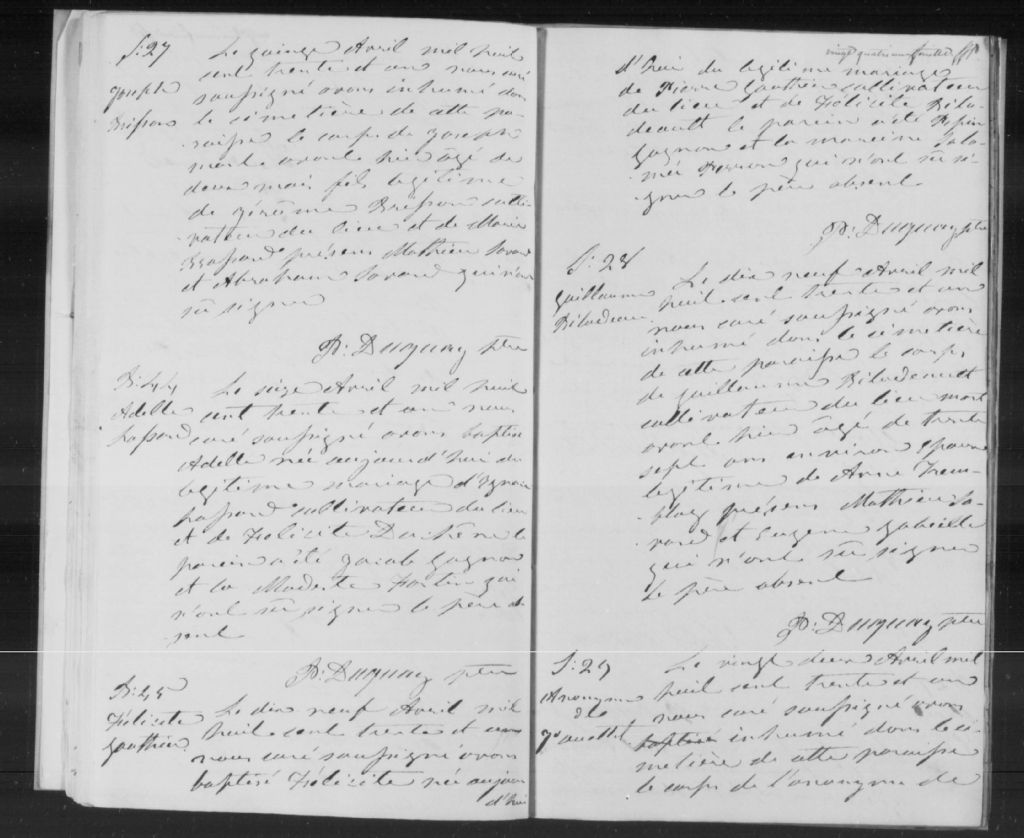 S: 27
Joseph
Brisson
Le quinze Avril mil huit
cent trente et un nous curé
soussigné avons inhumé dans
le cimetière de cette pa-
roisse le corps de Joseph
mort avant hier âgé de
deux mois fils legitime
de Jérôme Brisson culti-
vateur du lieu et de Marie
présens Mathieu Savard
et Abraham Savard qui n'ont
sû signer
P: Duguay ptre
B: 44
Adelle
Lassard
Le seize Avril mil huit
cent trente et un nous
curé soussigné avons baptisé
Adelle née aujourd'hui du
legitime mariage d'Ignace
Lassard cultivateur du lieu
et de Félicité Duchêne le
parein a été Jacob Gagnon
et la Modeste Fortin qui
n'ont sû signer le père ab
sent
P: Duguay ptre
B: 45
Félicité
Gauthier
Le dix neuf Avril mil
huit cent trente et un
nous curé soussigné avons
baptisé Félicité née aujour
d'hui
vingt quatrieme feuillet
d'hui du legitime mariage
de Pierre Gauthier cultivateur
du lieu et de Félicité Bilo-
deault le parein a été
Gagnon et la mareine Salo-
mée qui n'ont sû si-
gner le père absent
P: Duguay ptre
S: 28
Guillaume
Bilodeau
Le dix neuf Avril mil
huit cent trente et un
nous curé soussigné avons
inhumé dans le cimetière
de cette paroisse le corps
de Guillaume Bilodeault
cultivateur du lieu mort
avant hier âgé de trente
sept ans environ époux
legitime de Anne Trem-
blay présens Mathieu Sa-
vard et Eugene Gobeille
qui n'ont sû signer
Le père absent
P: Duguay ptre
S: 29
Anonyme
de
Le vingt deux Avril mil
huit cent trente et un
nous curé soussigné avons
baptisé inhumé dans le ci-
metière de cette paroisse
le corps de l'anonyme de